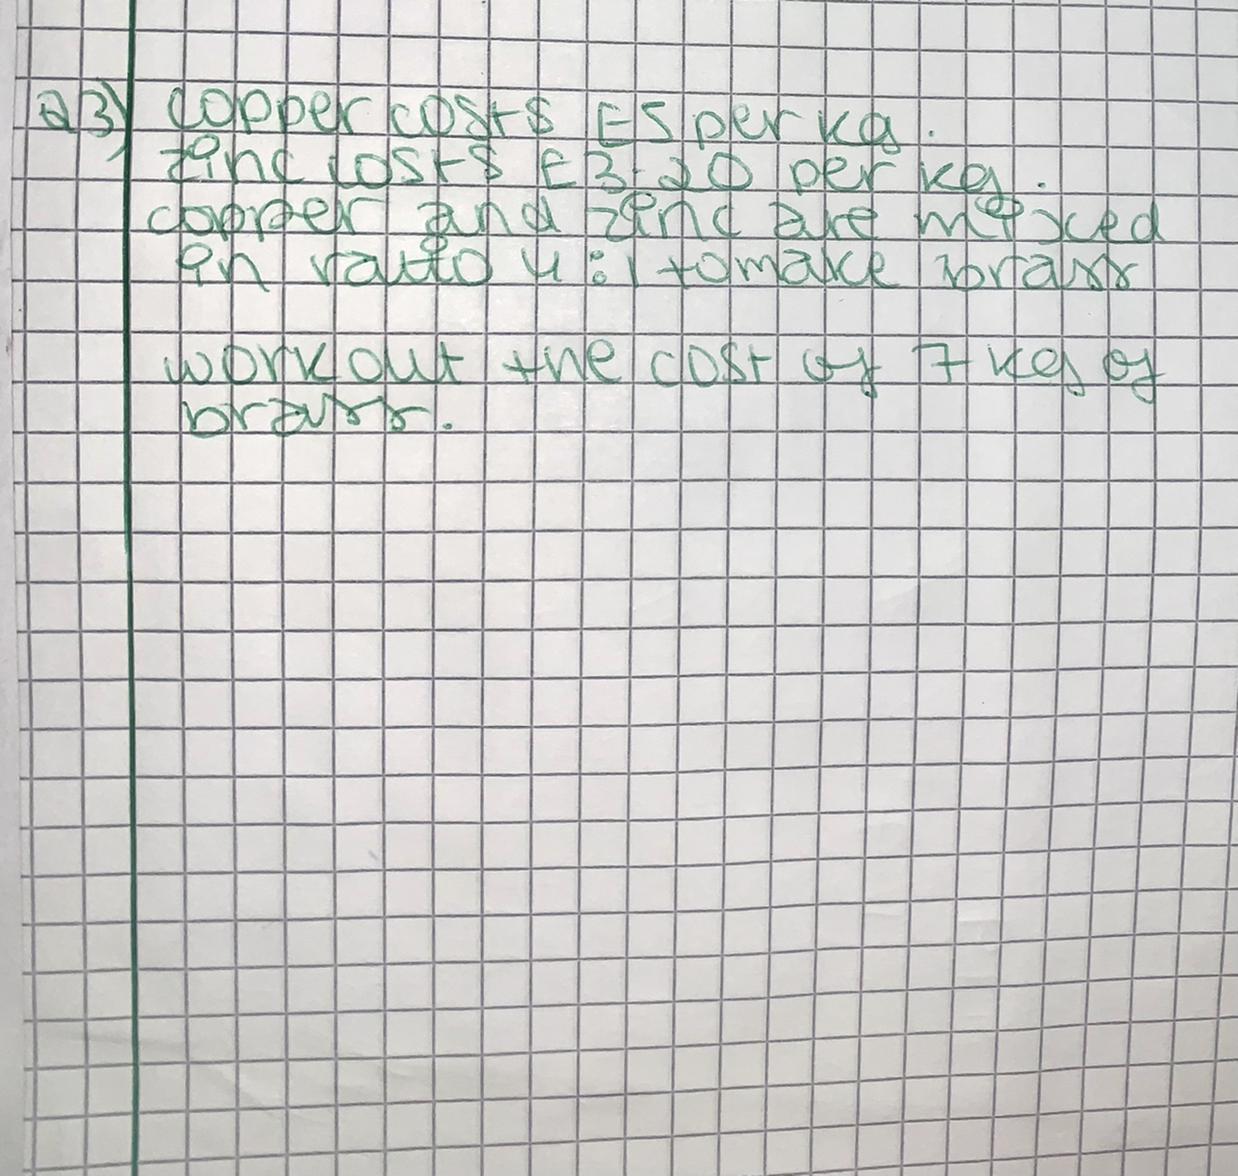 Q3) copper costs £5 per kg.
zinc costs £3.20 per kg.
copper and zinc are mixed
in ratio 4:1 to make brass
work out the cost of 7 kg of
brass.